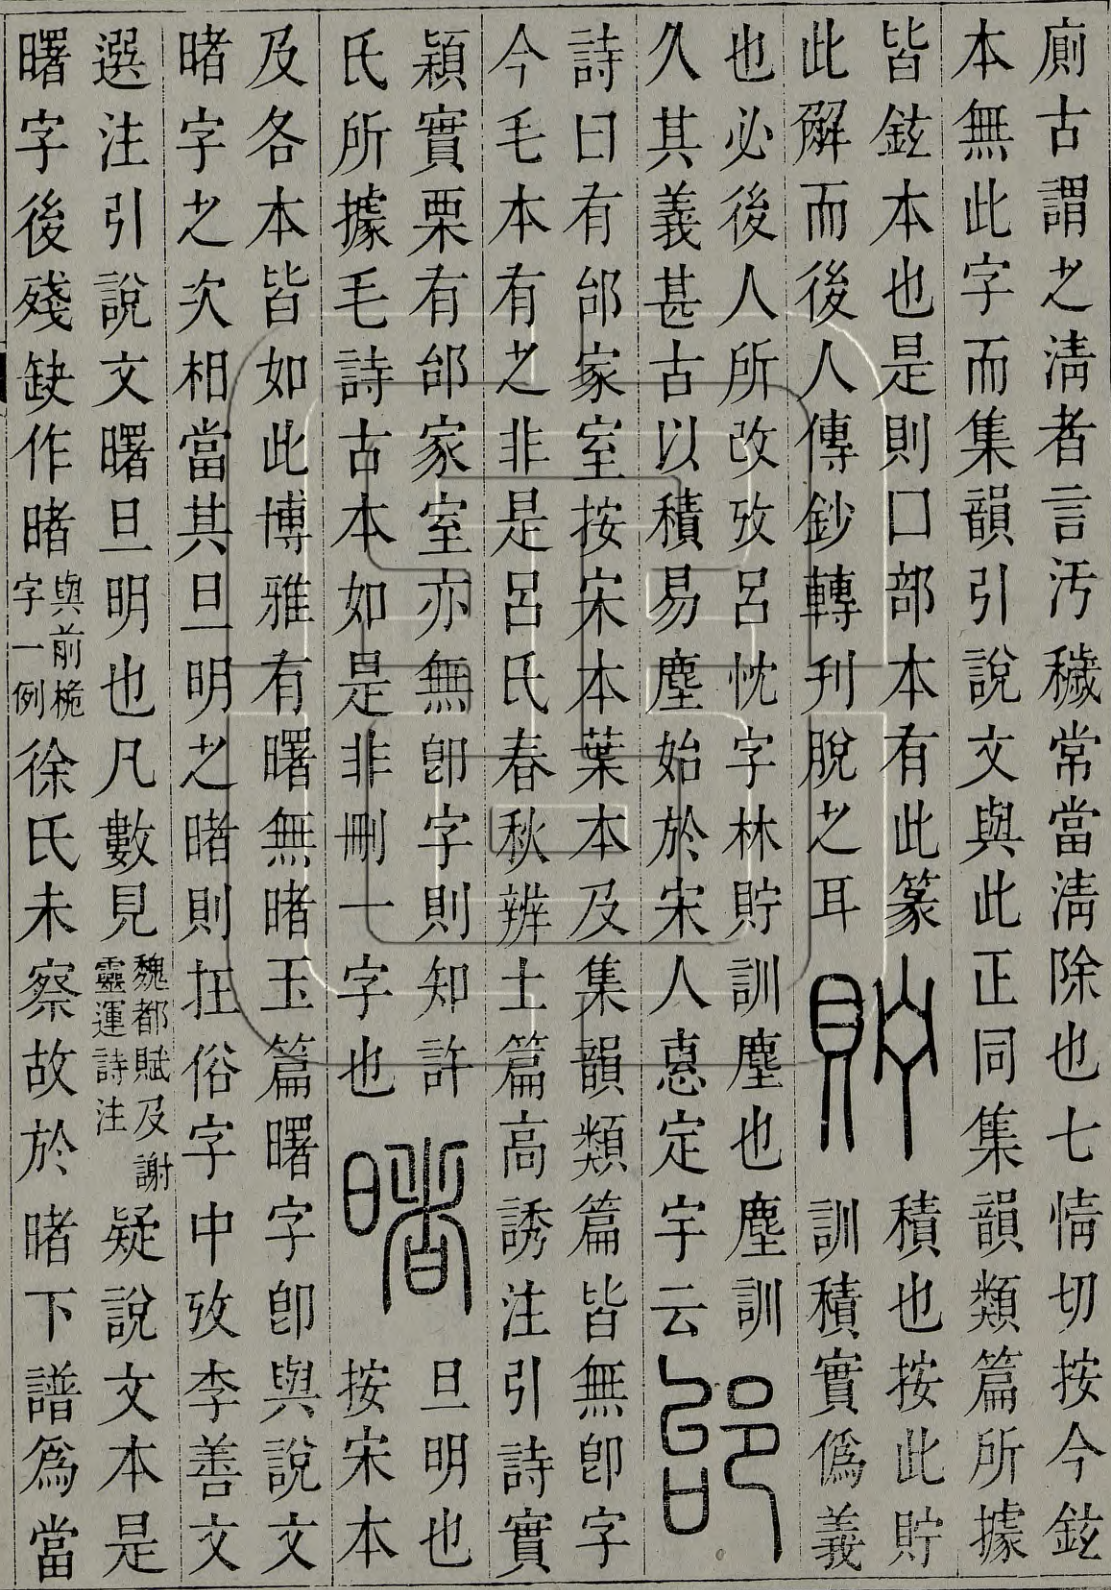 廁古謂之淸者言汚穢常當淸除也七情切按今鉉
本無此字而集韻引說文與此正同集韻類篇所據
皆鉉本也是則口部本有此篆
此解而後人傳鈔轉刋脫之耳
貯
積也按此貯
訓積實僞義
也必後人所改攷呂忱字林貯訓塵也塵訓
久其義甚古以積易塵始於宋人惪定宇云
邰
詩曰有邰家室按宋本葉本及集韻類篇皆無卽字
今毛本有之非是呂氏春秋辨土篇高誘注引詩實
穎實栗有邰家室亦無卽字則知許
氏所據毛詩古本如是非刪一字也
暏
旦明也
按宋本
及各本皆如此博雅有曙無暏玉篇曙字卽與說文
暏字之次相當其旦明之暏則扗俗字中攷李善文
選注引說文曙旦明也凡數見魏都賦及謝靈運詩注疑說文本是
曙字後殘缺作暏與前桅字一例徐氏未察故於暏下譜爲當